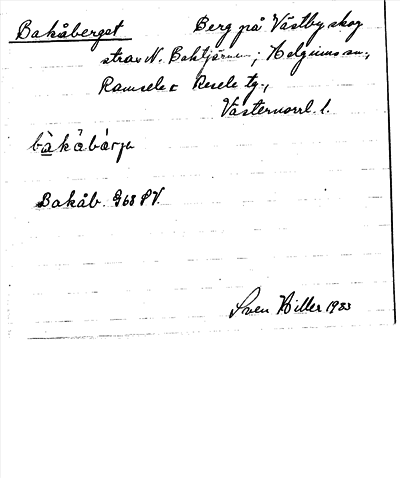 Bakåberget Berg på Västby skog
strax N. Baktjärnen; Helgums sn.,
Ramsele o Resele tg.,
Västernorrl. l.
bàkåbárja
Bakåb. G68 SV.
Sven Hiller 1933